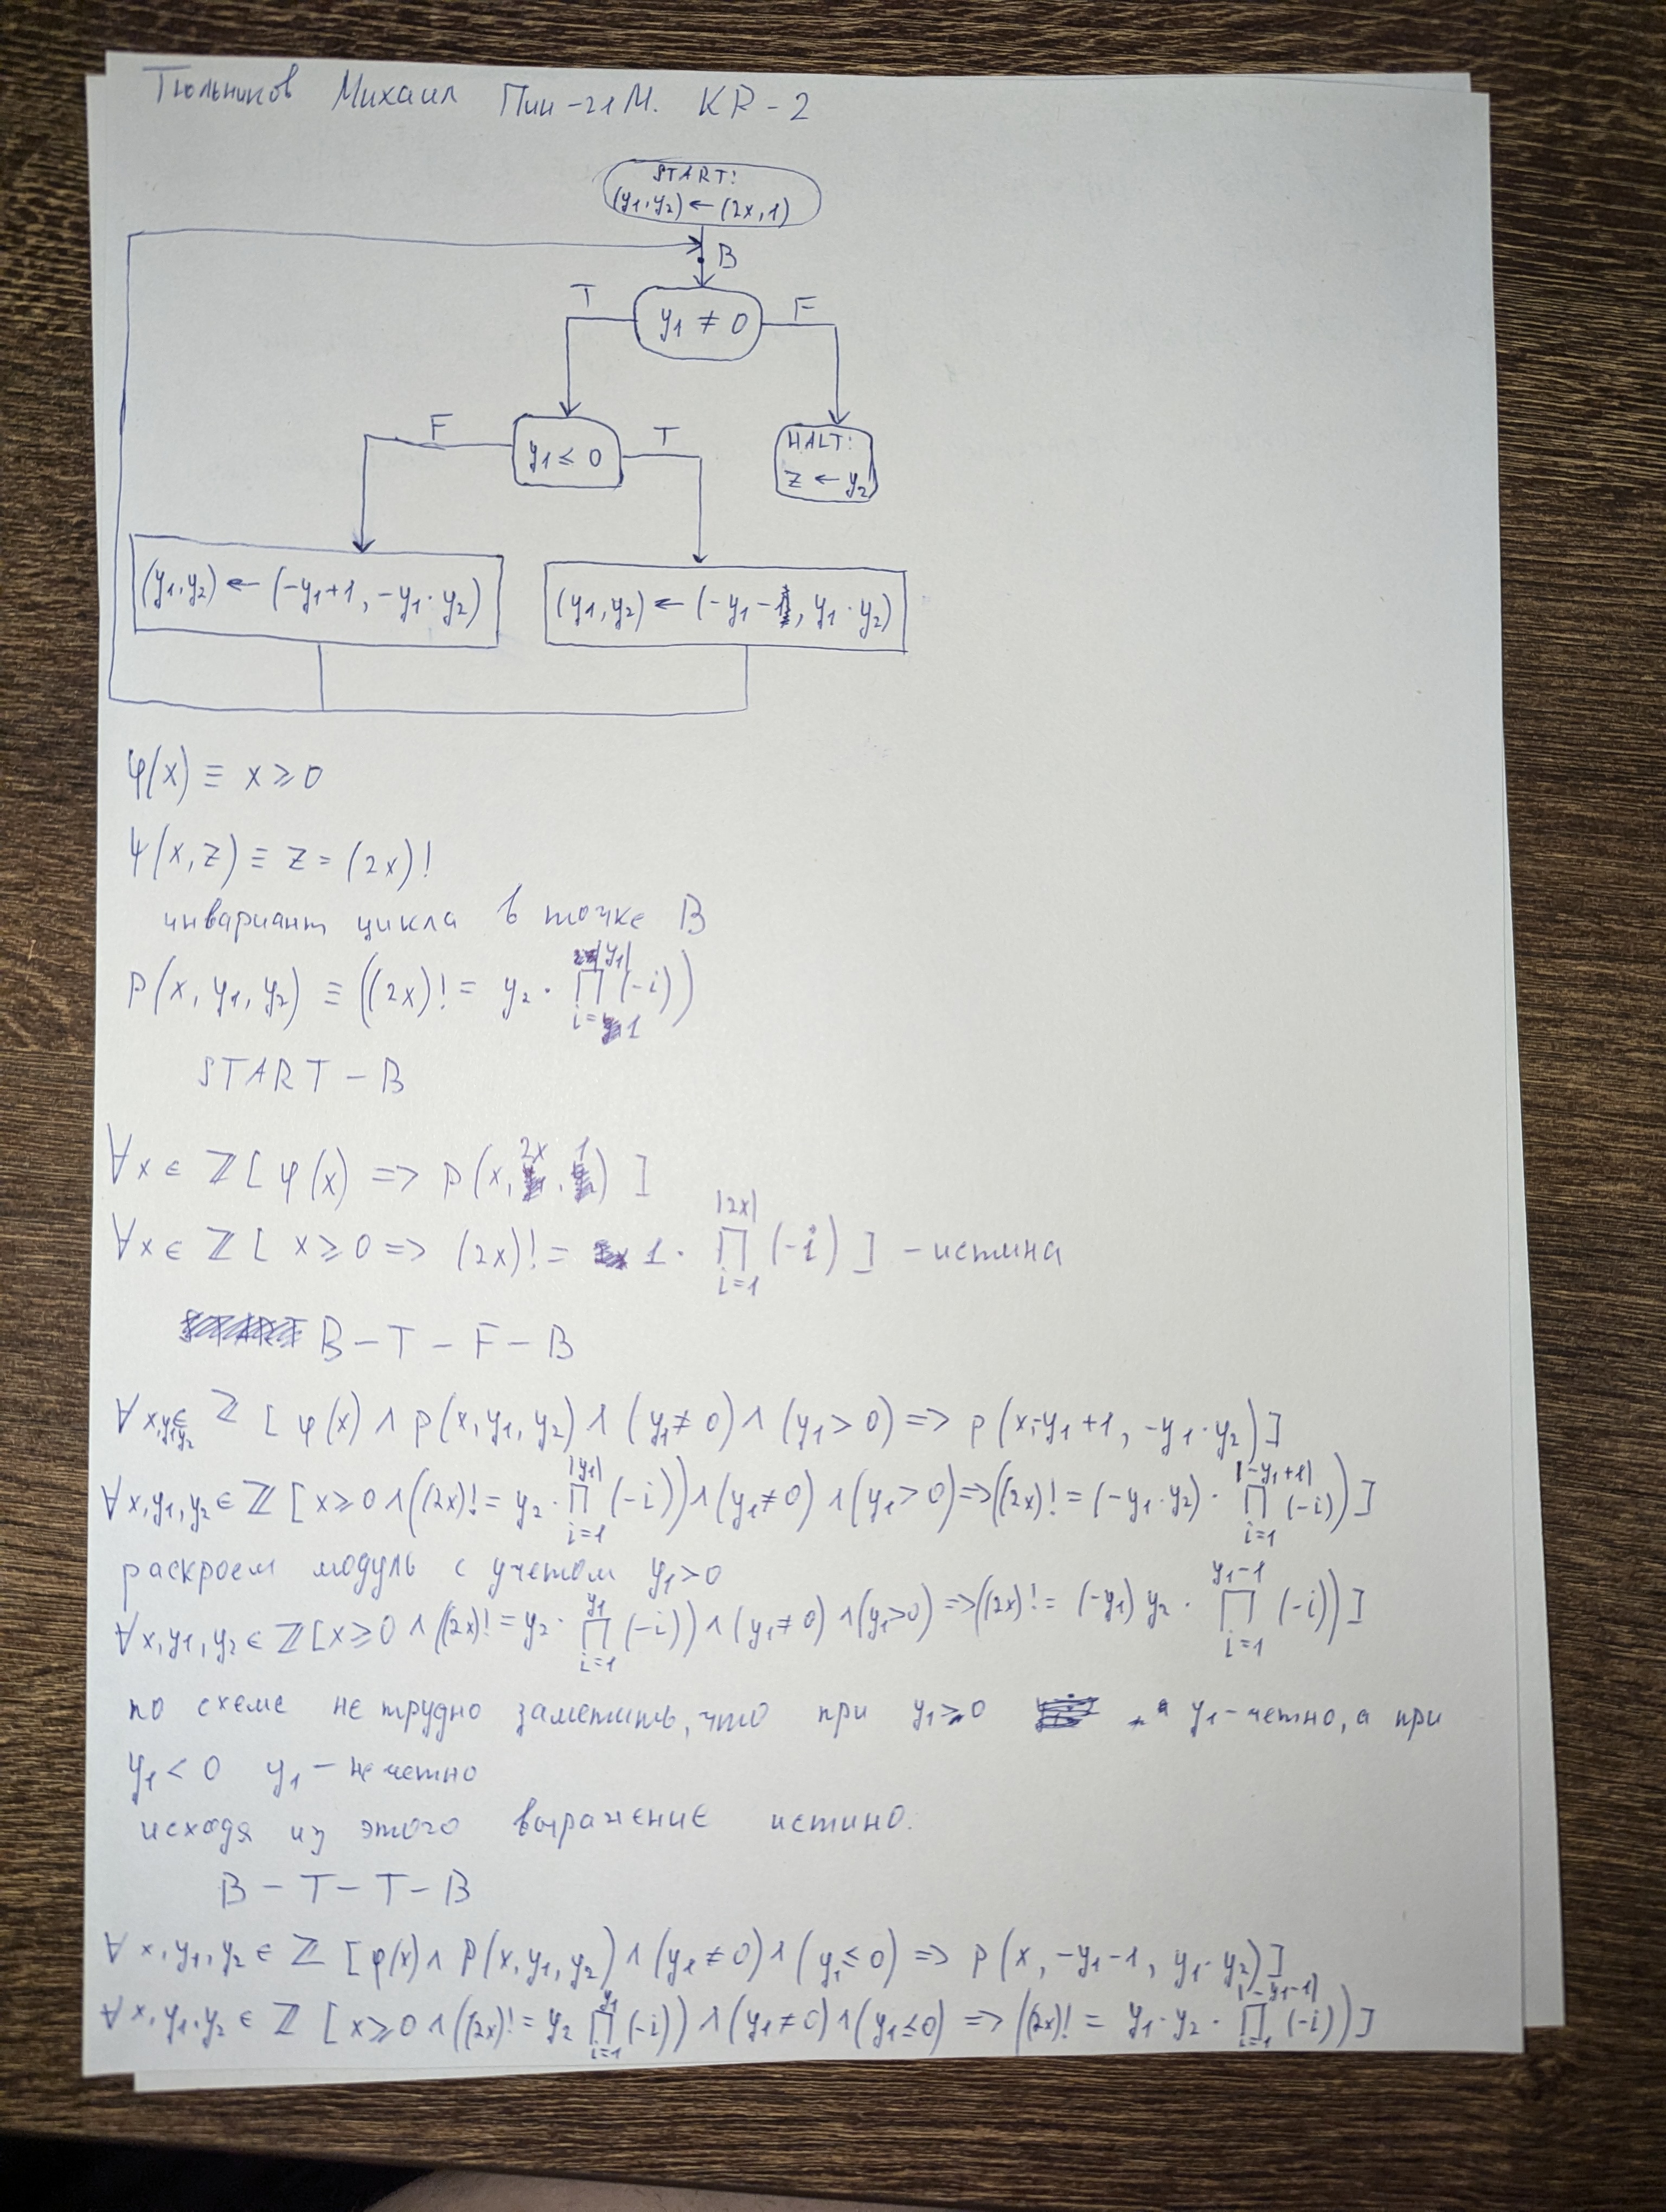 Тюльников Михаил Пин-21М. KP-2
START:
(y₁,y₂) ← (2x,1)
B
T
y₁ ≠ 0
F
F
y₁ ≤ 0
T
HALT:
z ← y₂
(y₁,y₂) ← (-y₁+1, -y₁·y₂)
(y₁,y₂) ← (-y₁-1, y₁·y₂)
φ(x) ≡ x ≥ 0
Ψ(x,z) ≡ z = (2x)!
инвариант цикла в точке B
P(x, y₁, y₂) ≡ ((2x)! = y₂ · ∏_{i=1}^{|y₁|} (-i))
START – B
∀x ∈ ℤ [ φ(x) => P(x, 2x, 1) ]
∀x ∈ ℤ [ x ≥ 0 => (2x)! = 1 · ∏_{i=1}^{|2x|} (-i) ] – истина
B – T – F – B
∀x,y₁,y₂ ∈ ℤ [ φ(x) ∧ p(x, y₁, y₂) ∧ (y₁ ≠ 0) ∧ (y₁ > 0) => p(x, -y₁+1, -y₁·y₂) ]
∀x,y₁,y₂ ∈ ℤ [ x ≥ 0 ∧ ((2x)! = y₂ · ∏_{i=1}^{|y₁|} (-i)) ∧ (y₁ ≠ 0) ∧ (y₁ > 0) => ((2x)! = (-y₁·y₂) · ∏_{i=1}^{|-y₁+1|} (-i)) ]
раскроем модуль с учетом y₁>0
∀x,y₁,y₂ ∈ ℤ [ x ≥ 0 ∧ ((2x)! = y₂ · ∏_{i=1}^{y₁} (-i)) ∧ (y₁ ≠ 0) ∧ (y₁ > 0) => ((2x)! = (-y₁) y₂ · ∏_{i=1}^{y₁-1} (-i)) ]
по схеме не трудно заметить, что при y₁ ≥ 0 , y₁ - четно, а при
y₁ < 0 y₁ – нечетно
исходя из этого выражение истино.
B – T – T – B
∀x,y₁,y₂ ∈ ℤ [ φ(x) ∧ P(x, y₁, y₂) ∧ (y₁ ≠ 0) ∧ (y₁ ≤ 0) => p(x, -y₁-1, y₁·y₂) ]
∀x,y₁,y₂ ∈ ℤ [ x ≥ 0 ∧ ((2x)! = y₂ ∏_{i=1}^{y₁} (-i)) ∧ (y₁ ≠ 0) ∧ (y₁ ≤ 0) => ((2x)! = y₁·y₂ · ∏_{i=1}^{|-y₁-1|} (-i)) ]